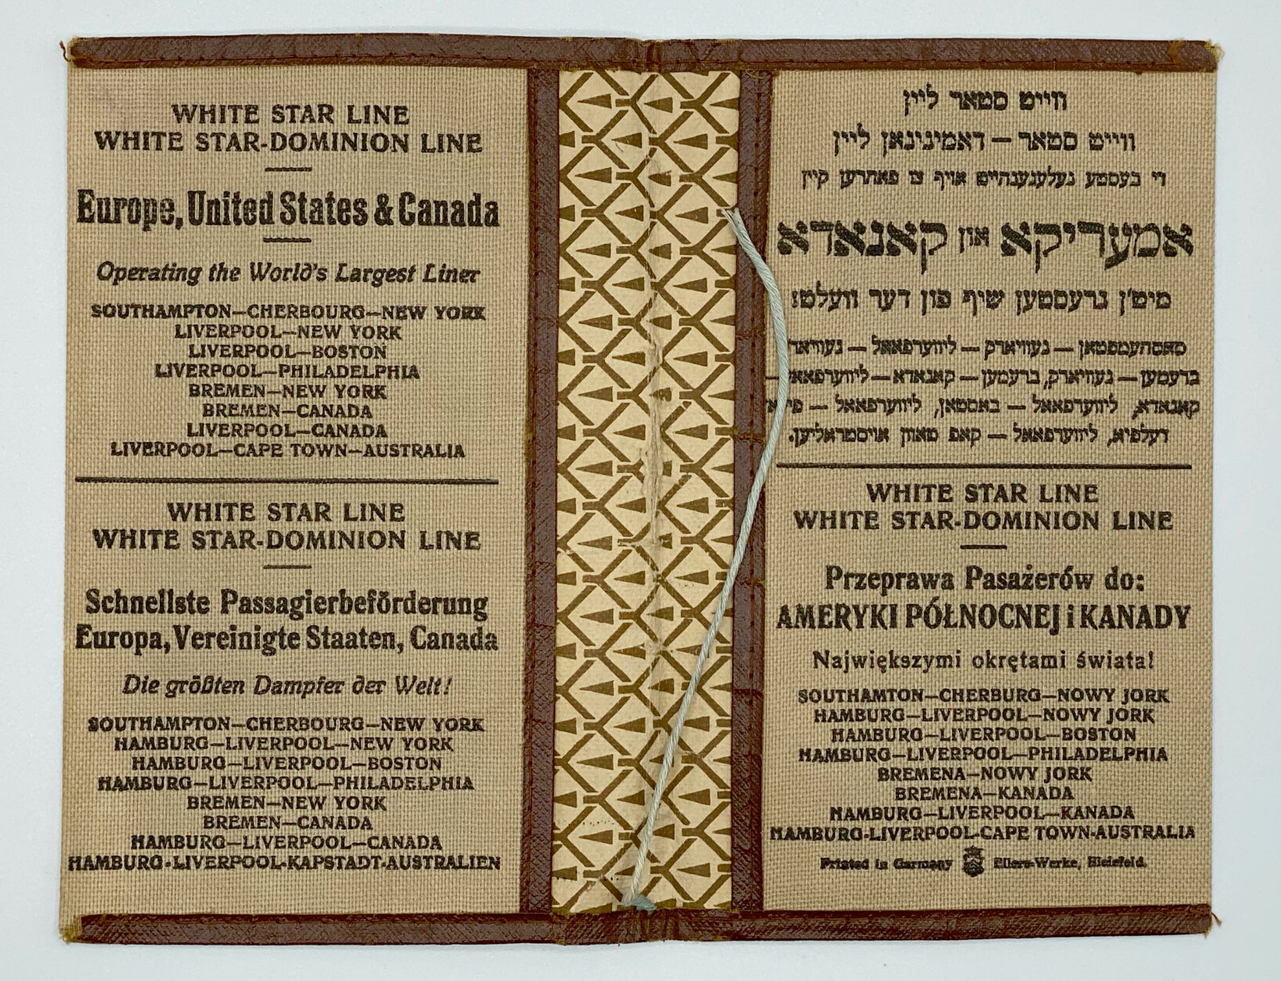 WHITE STAR LINE
WHITE STAR-DOMINION LINE
Europe, United States & Canada
Operating the World's Largest Liner
SOUTHAMPTON—CHERBOURG—NEW YORK
LIVERPOOL—NEW YORK
LIVERPOOL—BOSTON
LIVERPOOL—PHILADELPHIA
BREMEN—NEW YORK
BREMEN—CANADA
LIVERPOOL—CANADA
LIVERPOOL—CAPE TOWN—AUSTRALIA
WHITE STAR LINE
WHITE STAR-DOMINION LINE
Schnellste Passagierbeförderung
Europa, Vereinigte Staaten, Canada
Die größten Dampfer der Welt!
SOUTHAMPTON—CHERBOURG—NEW YORK
HAMBURG—LIVERPOOL—NEW YORK
HAMBURG—LIVERPOOL—BOSTON
HAMBURG—LIVERPOOL—PHILADELPHIA
BREMEN—NEW YORK
BREMEN—CANADA
HAMBURG—LIVERPOOL—CANADA
HAMBURG-LIVERPOOL-KAPSTADT-AUSTRALIEN
ווייט סטאר ליין
ווייט סטאר — דאמיניגאן ליין
די בעסטע געלעגענהייט אויף צו פאהרען קיין
אמעריקא און קאנאדא
מיט'ן גרעסטען שיף פון דער וועלט!
סאוטהעמפטאן — נעוויארק — ליווערפאאל — נעוויארק
ברעמען — נעוויארק, ברעמען — קאנאדא — ליווערפאאל
קאנאדא, ליווערפאאל — באסטאן, ליווערפאאל —
דעלפיא, ליווערפאאל — קאפ טאוון אויסטראליען.
WHITE STAR LINE
WHITE STAR-DOMINION LINE
Przeprawa Pasażerów do:
AMERYKI PÓŁNOCNEJ i KANADY
Największymi okrętami świata!
SOUTHAMTON—CHERBURG—NOWY JORK
HAMBURG—LIVERPOOL—NOWY JORK
HAMBURG—LIVERPOOL—BOSTON
HAMBURG—LIVERPOOL—PHILADELPHIA
BREMENA—NOWY JORK
BREMENA—KANADA
HAMBURG—LIVERPOOL—KANADA
HAMBURG-LIVERPOOL-CAPE TOWN-AUSTRALIA
Printed in Garmany Eilers-Werke, Bielefeld.